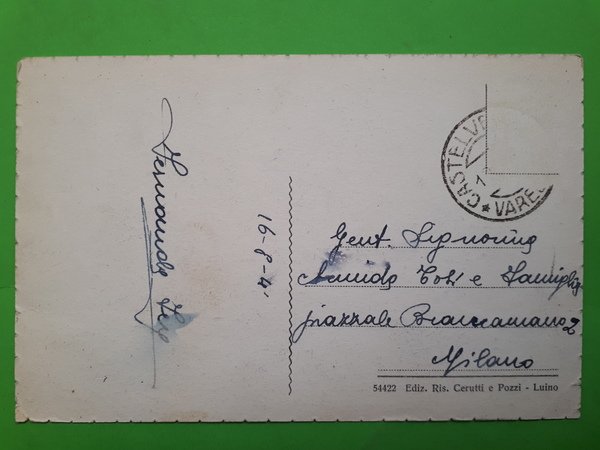 Fernanda
16-8-41
CASTELVE
VARES
Gent. Signorina
Armida Tosi e Famiglia
piazzale Brancamano 2
Milano
54422 Ediz. Ris. Cerutti e Pozzi - Luino